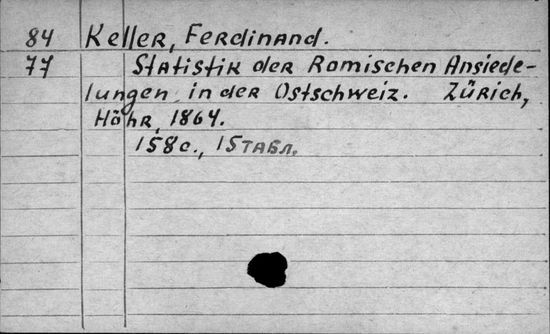 84 Keller, Ferdinand.
77 Statistik der Romischen Ansiede-
lungen in der Ostschweiz. Zürich,
Höhr, 1864.
158с., 15табл.